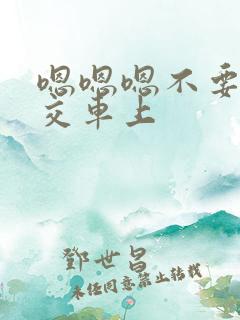 嗯嗯嗯不要
交车上
鄧世昌
未经同意禁止转载